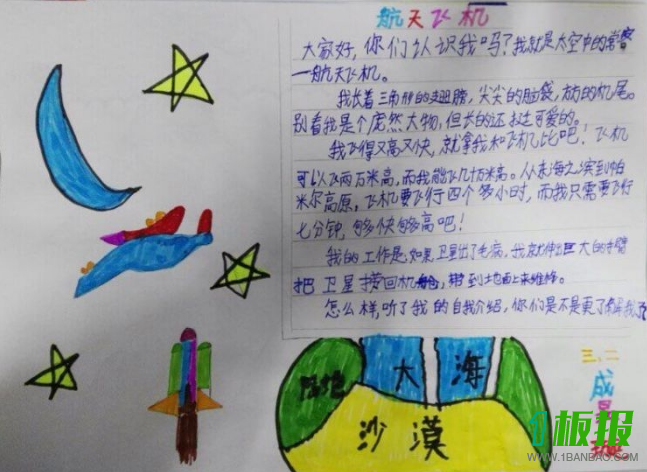 航天飞机
大家好,你们认识我吗?我就是太空中的常客
—航天飞机。
我长着三角形的翅膀,尖尖的脑袋,方方的机尾。
别看我是个庞然大物,但长的还挺可爱的。
我飞得又高又快,就拿我和飞机比吧!飞机
可以飞两万米高,而我能飞几十万米高。从东海之滨到帕
米尔高原,飞机要飞行四个多小时,而我只需要飞行
七分钟,够快够高吧!
我的工作是,如果卫星出了毛病,我就伸出巨大的手臂
把卫星捞回机舱,带到地面上来维修。
怎么样,听了我的自我介绍,你们是不是更了解我了
陆地
大海
沙漠
三、二
成
1板报
WWW.1BANBAO.COM